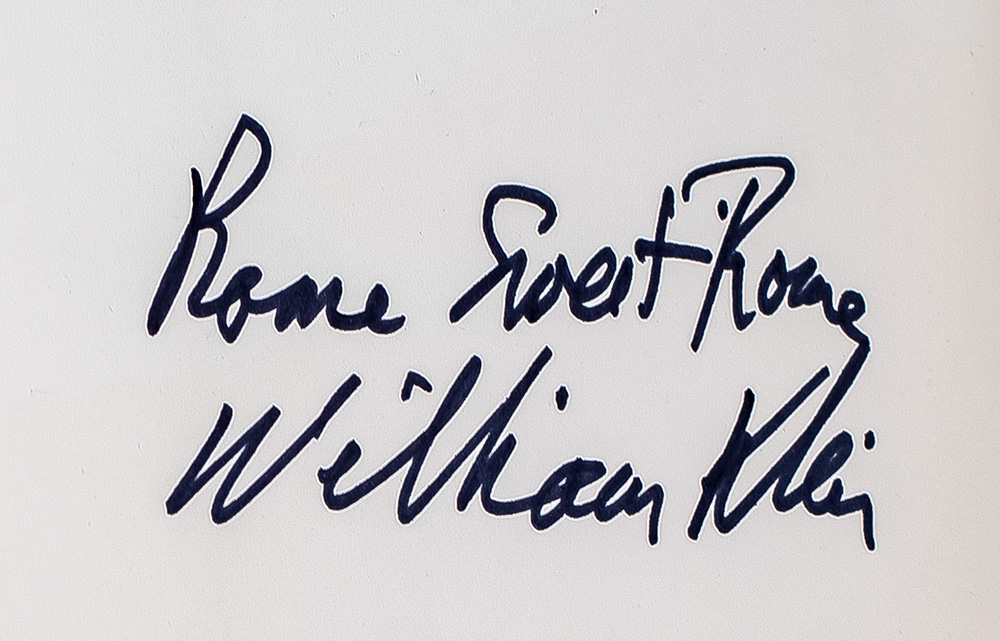 Rome Sweet Rome
William Klein